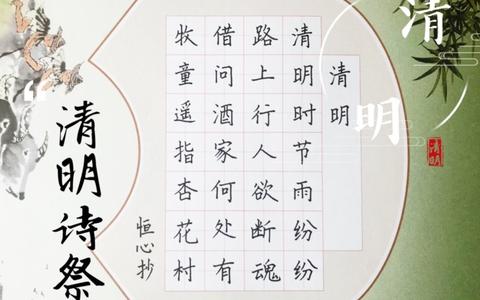 清明
清明
清明时节雨纷纷
路上行人欲断魂
借问酒家何处有
牧童遥指杏花村
恒心抄
“清明诗祭
清明